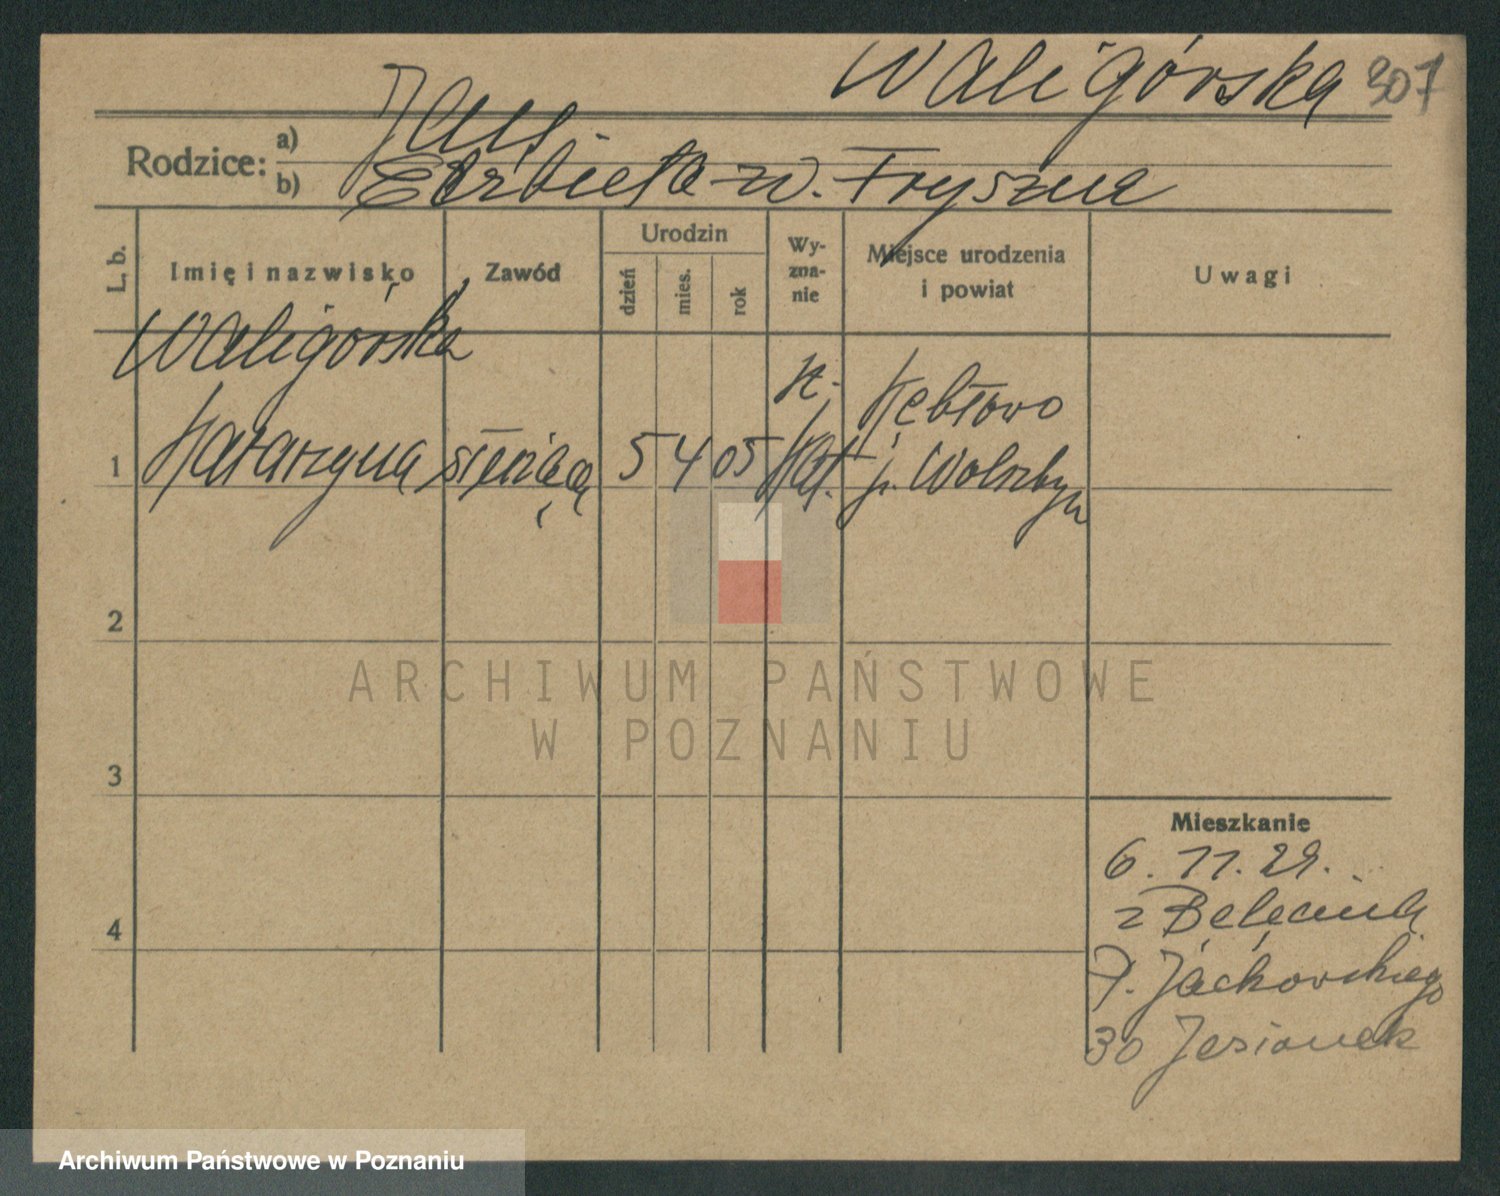 Waligórska 307
Rodzice:
a) Jan
b) Elżbieta zd. Fryszna
L. b.
Imię i nazwisko
Zawód
Urodzin
dzień
mies.
rok
Wy-
zna-
nie
Miejsce urodzenia
i powiat
Uwagi
Waligórska
1 Katarzyna służącą 5 4 05 rz. Kat. Kębłowo
p. Wolsztyn
2
3
4
Mieszkanie
6. 11. 29.
z Belęcina
P. Jackowskiego
30 Jesionek
ARCHIWUM PAŃSTWOWE
W POZNANIU
Archiwum Państwowe w Poznaniu